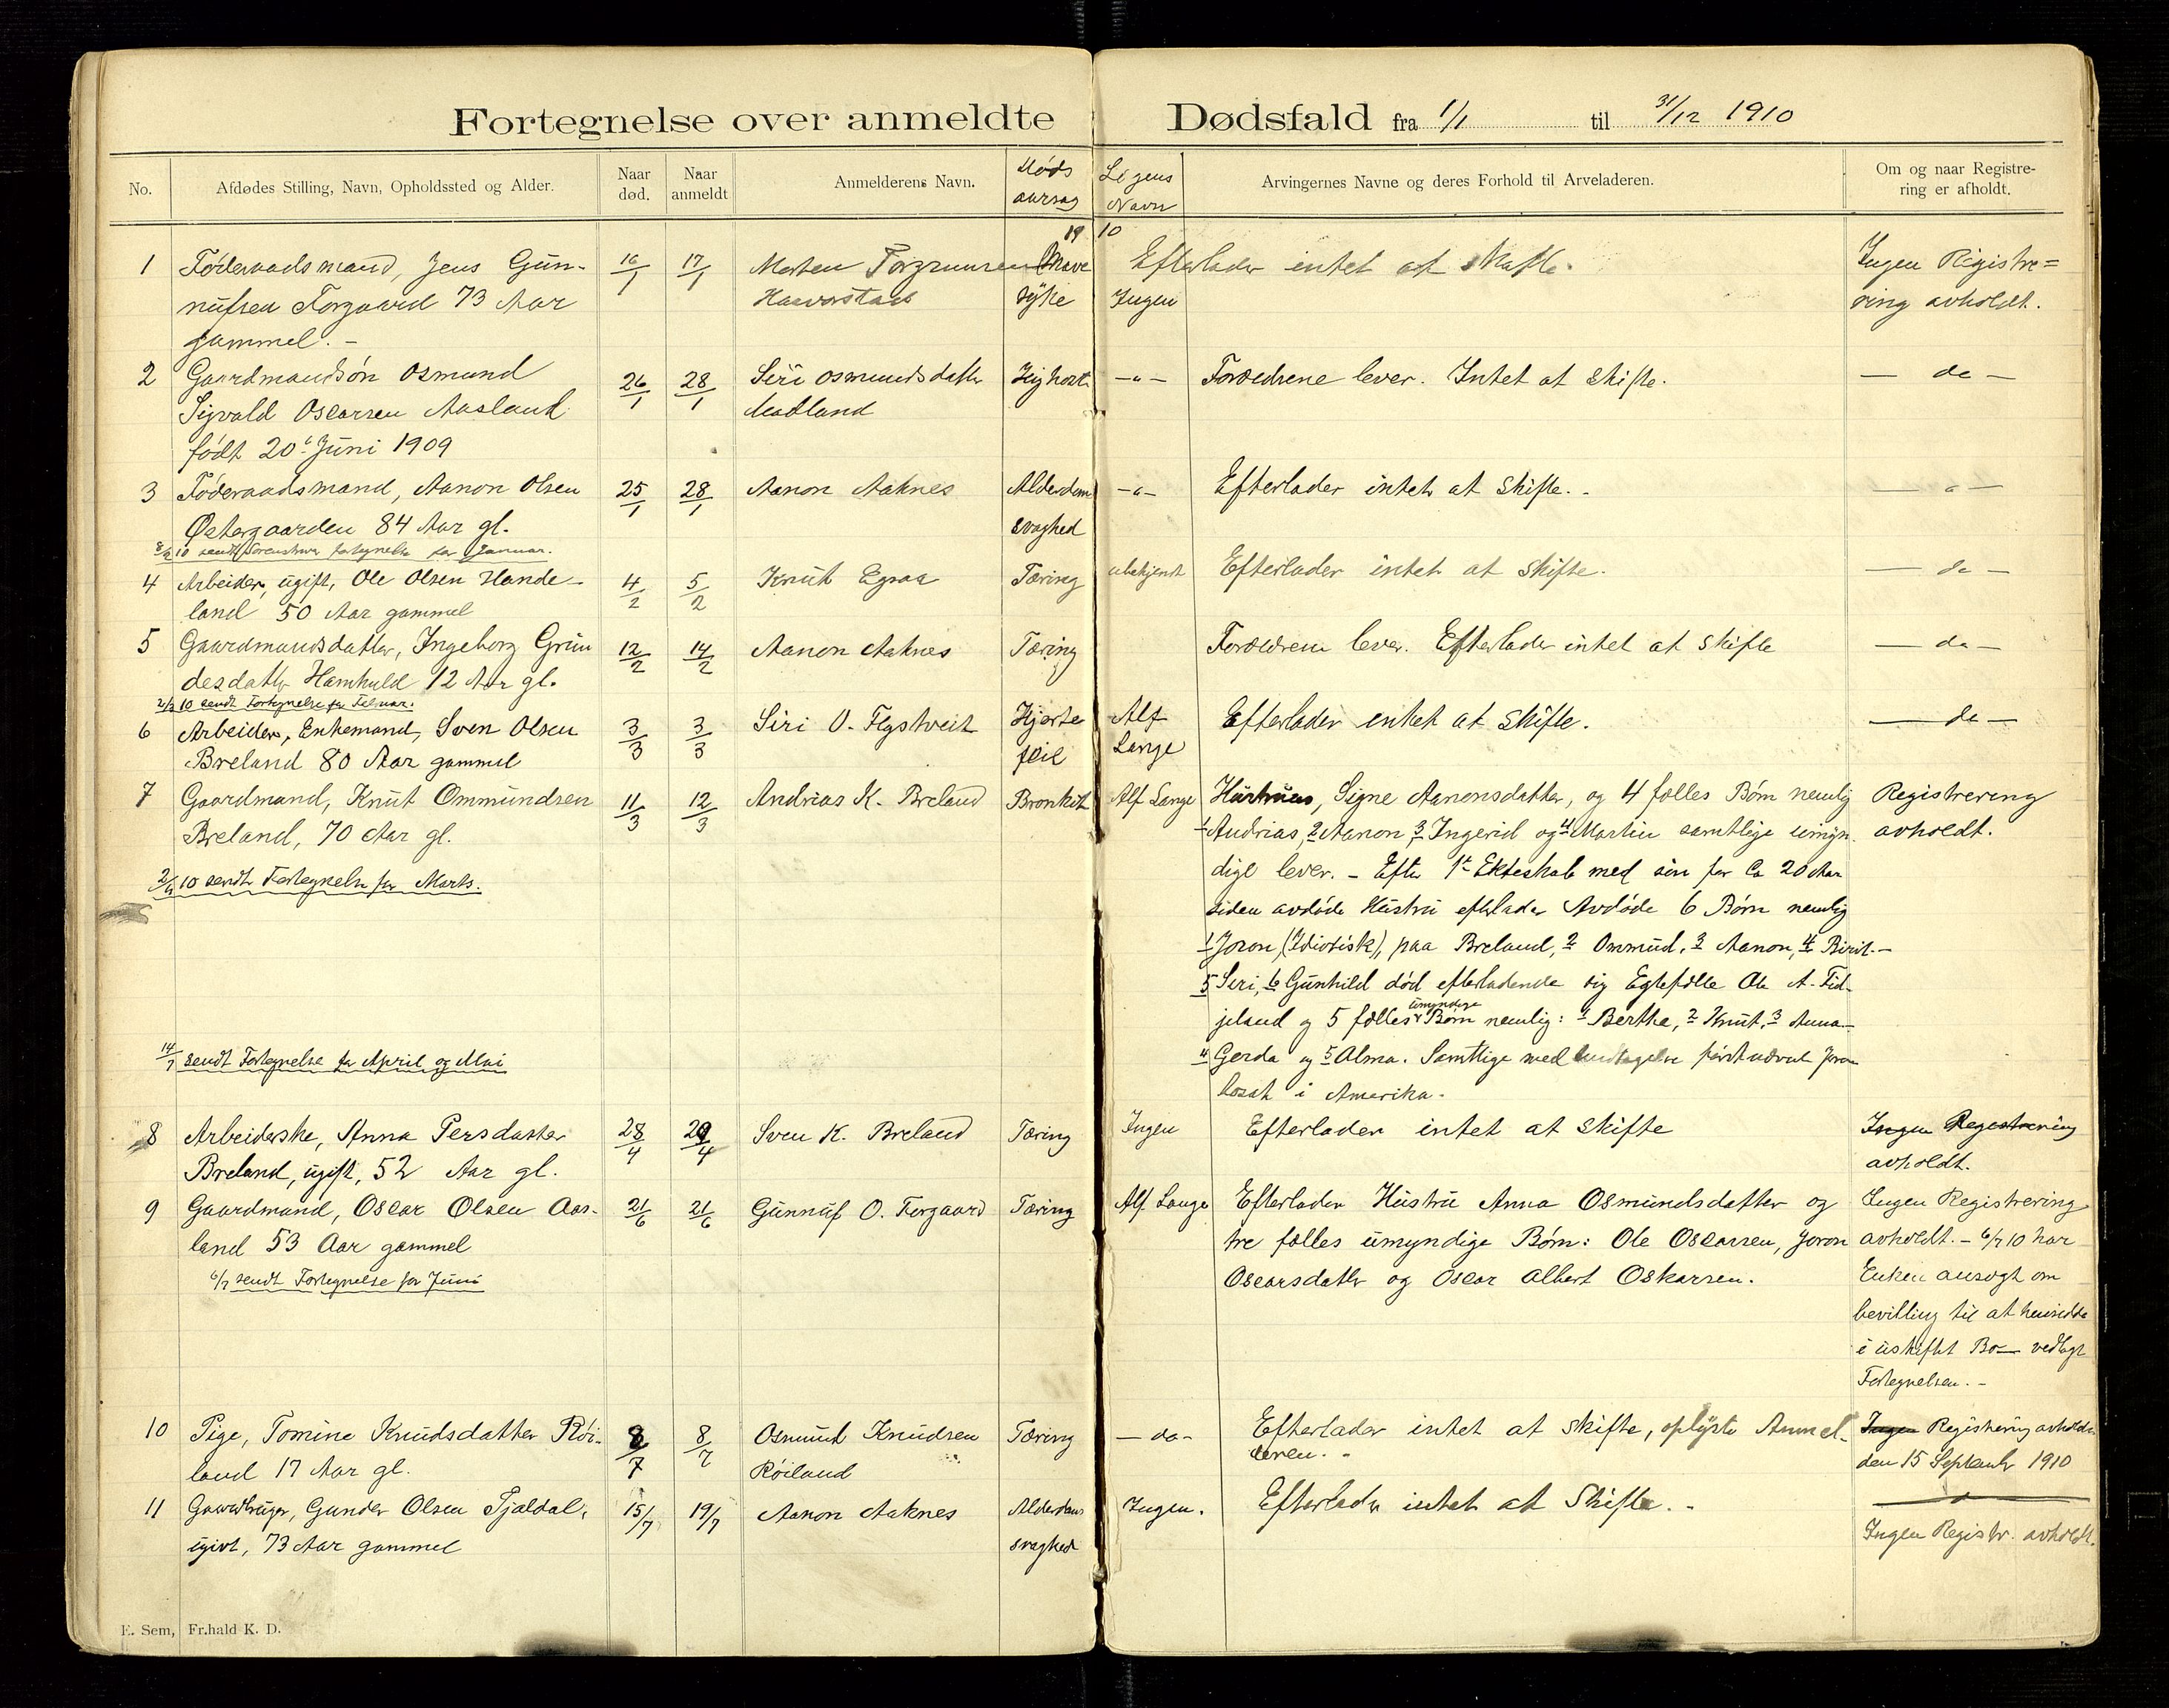 Fortegnelse over anmeldte Dødsfald fra 1/1 til 31/12 1910
No.
Afdødes Stilling, Navn, Opholdssted og Alder.
Naar død.
Naar anmeldt
Anmelderens Navn.
Døds aarsag
Lægens Navn
Arvingernes Navne og deres Forhold til Arveladeren.
Om og naar Registrering er afholdt.
1910
1 Føderaadsmand, Jens Gun- 16/1 17/1 Morten Torgrimsen Mave Efterlader intet at skifte. Ingen Registre=
nufsen Forgaard 73 Aar Haaverstad syke Ingen ring avholdt.
gammel. -
2 Gaardmandsøn Osmund 26/1 28/1 Siri Osmundsdatter Kighoste -"- Forældrene lever. Intet at skifte. - do -
Sigvald Oscarsen Aasland Aasland
født 20 Juni 1909
3 Føderaadsmand, Aanon Olsen 25/1 28/1 Aanon Aaknes Alderdom -"- Efterlader intet at skifte. - - " -
Østergaarden 84 Aar gl. svaghed
10 sendt Sorenskriver fortegnelse for Januar.
4 Arbeider, ugift, Ole Olsen Hande- 4/2 5/2 Knut Egsaa Tæring ubekjendt Efterlader intet at skifte. - do -
land 50 Aar gammel
5 Gaardmandsdatter, Ingeborg Grun 12/2 14/2 Aanon Aaknes Tæring Forældrene lever. Efterlader intet at skifte - do -
desdatter Hamkuld 12 Aar gl.
2/3 10 sendt Fortegnelse for Februar.
6 Arbeider, Enkemand, Sven Olsen 3/3 3/3 Siri O. Flystveit Hjerte Alf Efterlader intet at skifte. - do -
Breland 80 Aar gammel feil Lange
7 Gaardmand, Knut Ommundsen 11/3 12/3 Andrias K. Breland Bronkit Alf Lange Hustrues, Signe Aanonsdatter, og 4 fælles Børn nemlig Registrering
Breland, 70 Aar gl. 1 Andrias, 2 Aanon, 3 Ingerid og 4 Martin samtlige umyn. avholdt.
dige lever. - Efter 1t Ekteskab med sin for Ca 20 Aar
2/4 10 sendt Fortegnelse for Marts.
siden avdøde Hustru efterlader Avdøde 6 Børn nemlig
1 Joron, (Idiotisk), paa Breland, 2 Ommund, 3 Aanon, 4 Birit. -
5 Siri, 6 Gunhild død efterladende sig Egtefælle Ole A. Fid-
jeland og 5 fælles umyndige Børn nemlig: 1 Berthe, 2 Knut, 3 Anna -
14/7 sendt Fortegnelse for April og Mai
4 Gerda og 5 Alma. Samtlige med undtagelse førstnævnt Joron
bosat i Amerika.
8 Arbeiderske, Anna Persdatter 28/4 29/4 Sven K. Breland Tæring Ingen Efterlader intet at skifte Ingen Registrering
Breland, ugift, 52 Aar gl. avholdt.
9 Gaardmand, Oscar Olsen Aas- 21/6 21/6 Gunnuf O. Forgaard Tæring Alf Lange Efterlader Hustru Anna Osmundsdatter og Ingen Registrering
land 53 Aar gammel tre fælles umyndige Børn: Ole Oscarsen, Joron avholdt. - 6/7 10 har
6/7 sendt Fortegnelse for Juni Oscarsdatter og Oscar Albert Oskarsen. Enken ansøgt om
bevilling til at hensidde
i uskiftet Bo - vedlagt
Fortegnelsen. -
10 Pige, Tomine Knudsdatter Røi- 8/7 8/7 Osmund Knudsen Tæring - do - Efterlader intet at skifte, oplyste Anmel- Ingen Registrering avholdt
land 17 Aar gl. Røiland deren. - den 15 September 1910
11 Gaardbruger, Gunder Olsen Tjaldal, 15/7 19/7 Aanon Aaknes Alderdoms Ingen. Efterlader intet at Skifte. -
ugivt, 73 Aar gammel svaghed Ingen Registr. avholdt.
E. Sem, Fr.hald K. D.